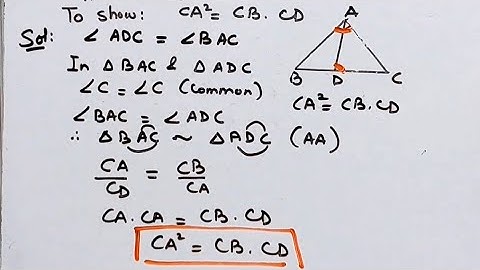 To show: CA² = CB . CD
Sol: ∠ ADC = ∠ BAC
In Δ BAC & Δ ADC
∠C = ∠C (Common)
∠BAC = ∠ADC
∴ Δ BAC ~ ΔADC (AA)
CA/CD = CB/CA
CA . CA = CB . CD
CA² = CB . CD
A
B D C
CA² = CB . CD